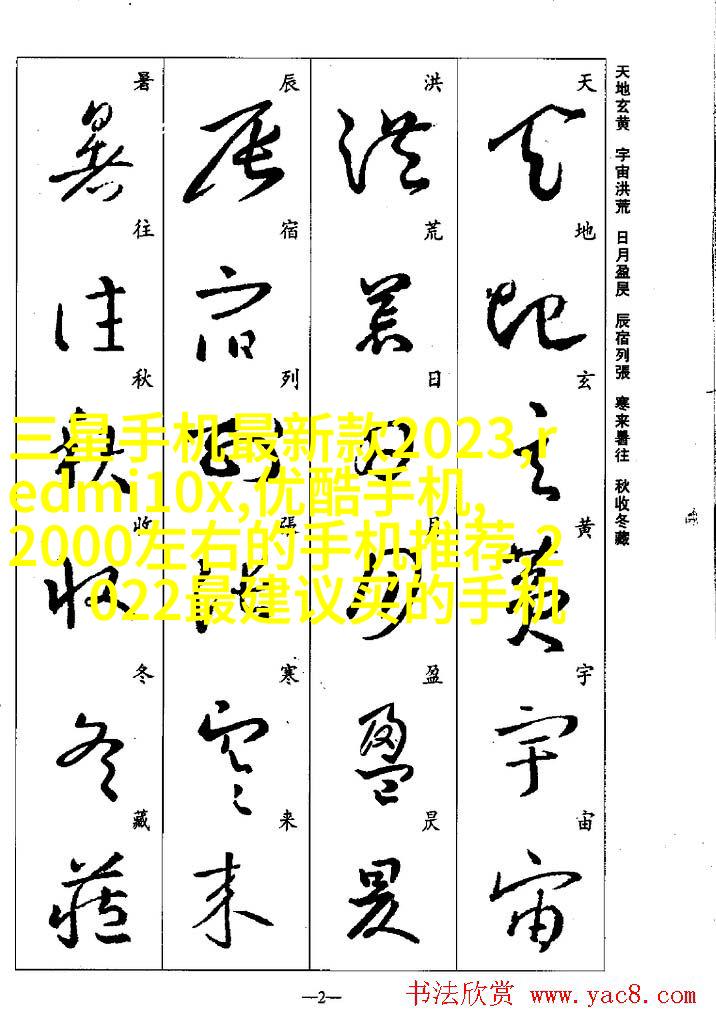 天地玄黄 宇宙洪荒 日月盈昃 辰宿列張 寒来暑往 秋收冬藏
天地玄黄宇宙
洪荒日月盈昃
辰宿列張寒来
暑往秋收冬藏
三星手机最新款2023,r
edmi10x,优酷手机,
2000左右的手机推荐,2
022最建议买的手机
—2—
书法欣赏 www.yac8.com